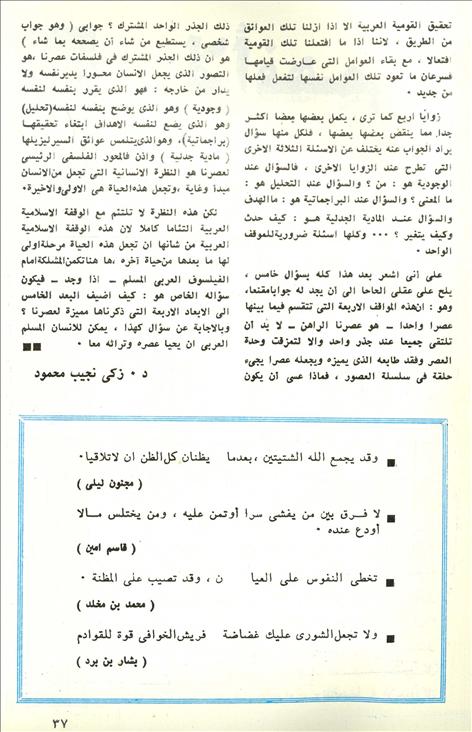 تحقيق القومية العربية الا اذا ازلنا تلك العوائق
من الطريق ، لاننا اذا ما افتعلنا تلك القومية
افتعالا ، مع بقاء العوامل التى عارضت قيامها
فسرعان ما تعود تلك العوامل نفسها لتفعل فعلها
من جديد ٠
زوايا اربع كما ترى ، يكمل بعضها بعضا اكثر
جدا مما ينقض بعضها بعضها ، فلكل منها سؤال
يراد الجواب عنه يختلف عن الاسئلة الثلاثة الاخرى
التى تطرح عند الزوايا الاخرى ، فالسؤال عند
الوجودية هو : من ؟ والسؤال عند التحليل هو :
ما المعنى ؟ والسؤال عند البراجماتية هو : ما الهدف
والسؤال عند المادية الجدلية هو : كيف حدث
وكيف يتغير ؟ ٠٠٠ وكلها اسئلة ضرورية للموقف
الواحد ٠
على انى اشعر بعد هذا كله بسؤال خامس ،
يلح على عقلى الحاحا الى ان يجد له جوابا مقنعا ،
وهو : ان هذه المواقف الاربعة التى تتقسم فيما بينها
عصرا واحدا ــ هو عصرنا الراهن ــ لا بد ان
تلتقى جميعا عند جذر واحد والا لتمزقت وحدة
العصر وفقد طابعه الذى يميزه ويجعله عصرا يجىء
حلقة فى سلسلة العصور ، فماذا عسى أن يكون
ذلك الجذر الواحد المشترك ؟ جوابى ( وهو جواب
شخصى ، يستطيع من شاء أن يصححه بما شاء )
هو ان ذلك الجذر المشترك فى فلسفات عصرنا ،هو
التصور الذى يجعل الانسان محورا يدير نفسه ولا
يدار من خارجه : فهو الذى يقرر بنفسه لنفسه
( وجودية ) وهو الذى يوضح بنفسه لنفسه (تحليل)
وهو الذى يضع لنفسه الاهداف ابتغاء تحقيقها
(براجماتية)، وهو الذى يتلمس عوائق السير ليزيلها
( مادية جدلية ) واذن فالمحور الفلسفى الرئيسى
لعصرنا هو النظرة الانسانية التى تجعل من الانسان
مبدأ وغاية ،وتجعل هذه الحياة هى الاولى والاخيرة٠
لكن هذه النظرة لا تلتئم مع الوقفة الاسلامية
العربية التئاما كاملا لان هذه الوقفة الاسلامية
العربية من شأنها ان تجعل هذه الحياة مرحلة اولى
لها ما بعدها من حياة آخره ،ها هنا تكمن المشكلة امام
الفيلسوف العربى المسلم ــ اذا وجد ــ فيكون
سؤاله الخاص هو : كيف اضيف البعد الخامس
الى الابعاد الاربعة التى ذكرناها مميزة لعصرنا ؟
وبالاجابة عن سؤال كهذا ، يمكن للانسان المسلم
العربى ان يحيا عصره وتراثه معا ٠
د ٠ زكى نجيب محمود
وقد يجمع الله الشتيتين ،بعدما يظنان كل الظن ان لا تلاقيا٠
( مجنون ليلى )
لا فرق بين من يفشى سرا أوتمن عليه ، ومن يختلس مالا
أودع عنده ٠
( قاسم امين )
تخطى النفوس على العيا ن ، وقد تصيب على المظنة ٠
( محمد بن مخلد )
ولا تجعل الشورى عليك غضاضة فريش الخوافى قوة للقوادم
( بشار بن برد )
٣٧